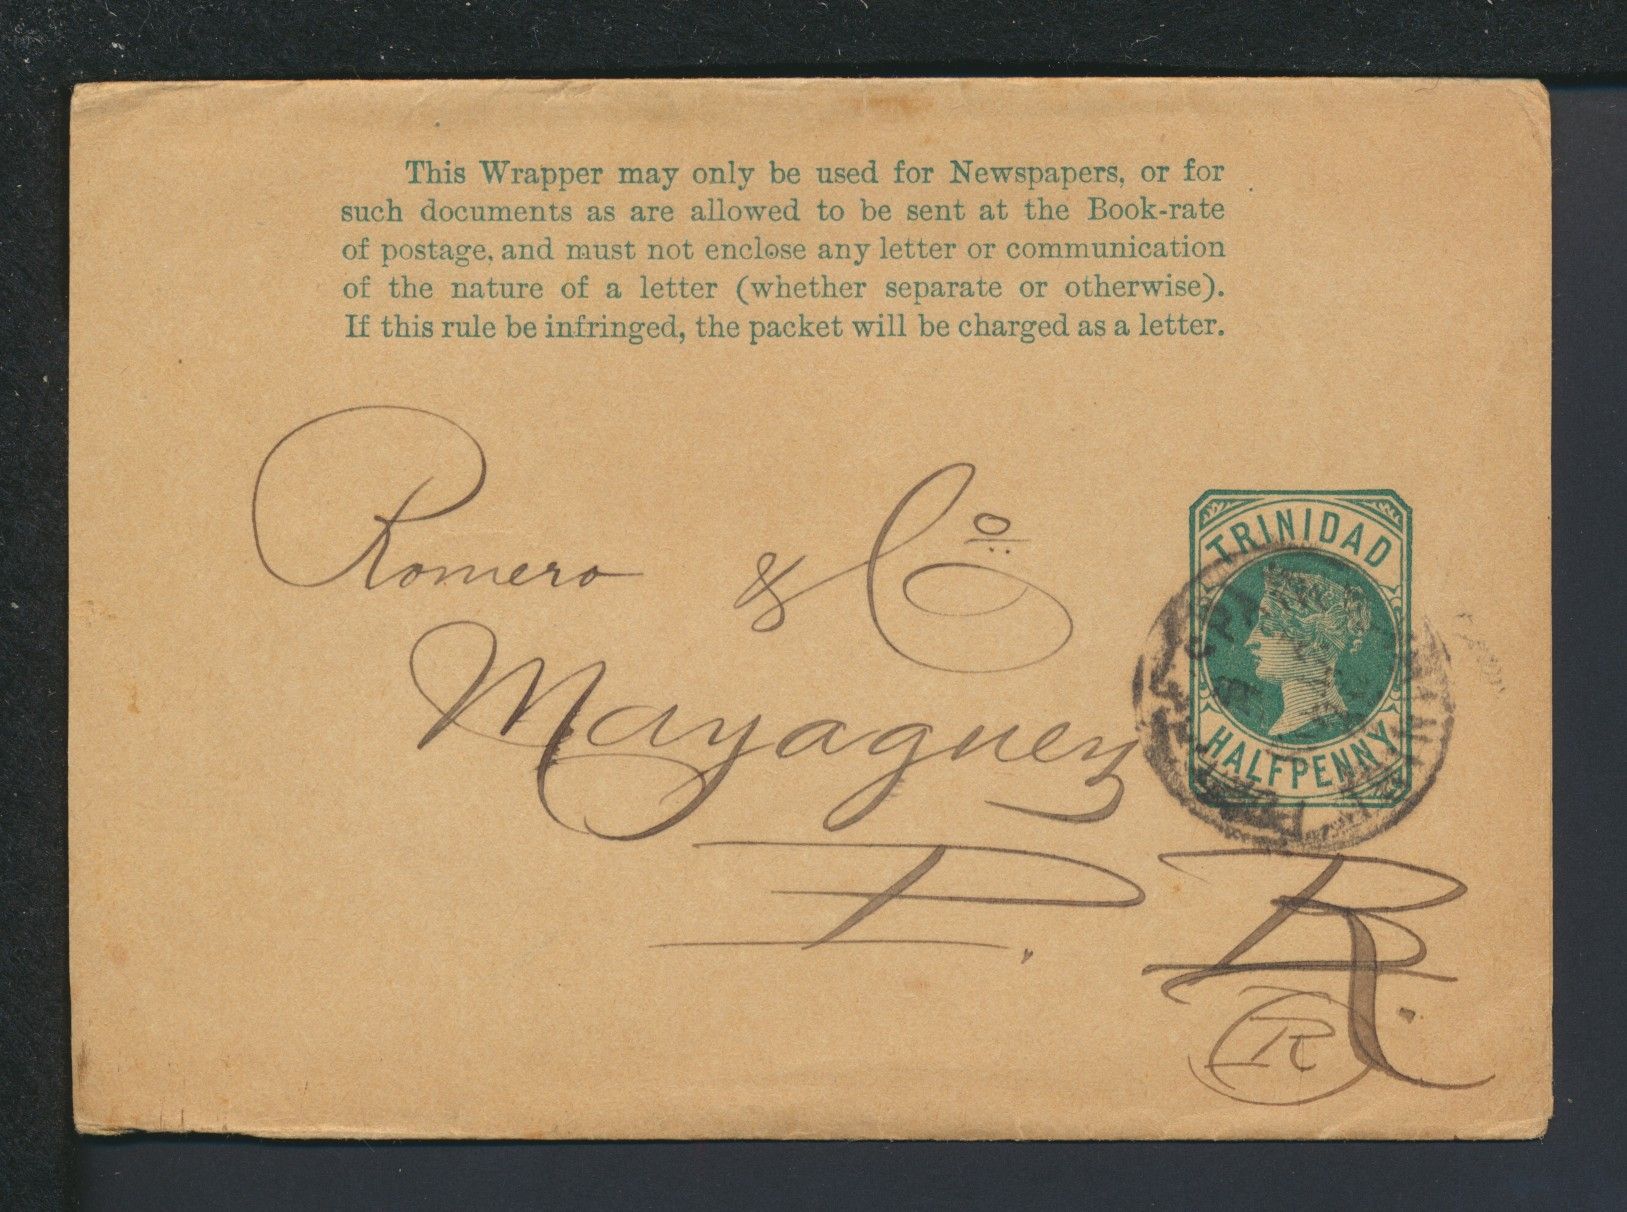 This Wrapper may only be used for Newspapers, or for
such documents as are allowed to be sent at the Book-rate
of postage, and must not enclose any letter or communication
of the nature of a letter (whether separate or otherwise).
If this rule be infringed, the packet will be charged as a letter.
Romero & Co
Mayaguez
P. R.
R
TRINIDAD
HALFPENNY